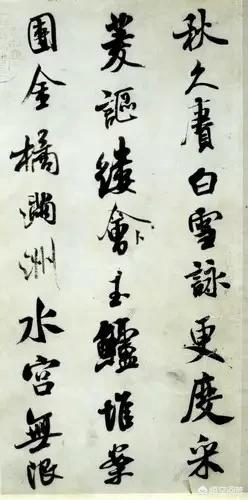 秋久賡白雪詠更度采
菱謳縷會卜玉鱸堆案
團金橘滿洲水宮無限
悟空问答